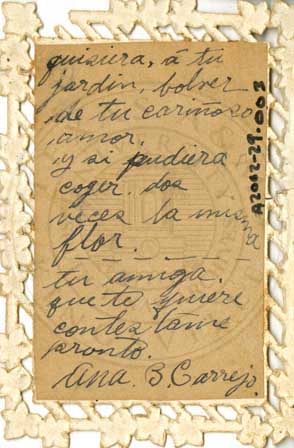 quisiera, á tu
jardin, bolver
de tu cariñoso
amor.
y si pudiera
coger. dos
veces la misma
flor.
tu amiga.
que te quiere
contestame
pronto.
Ana. B. Carrejo.
A2012-29.003